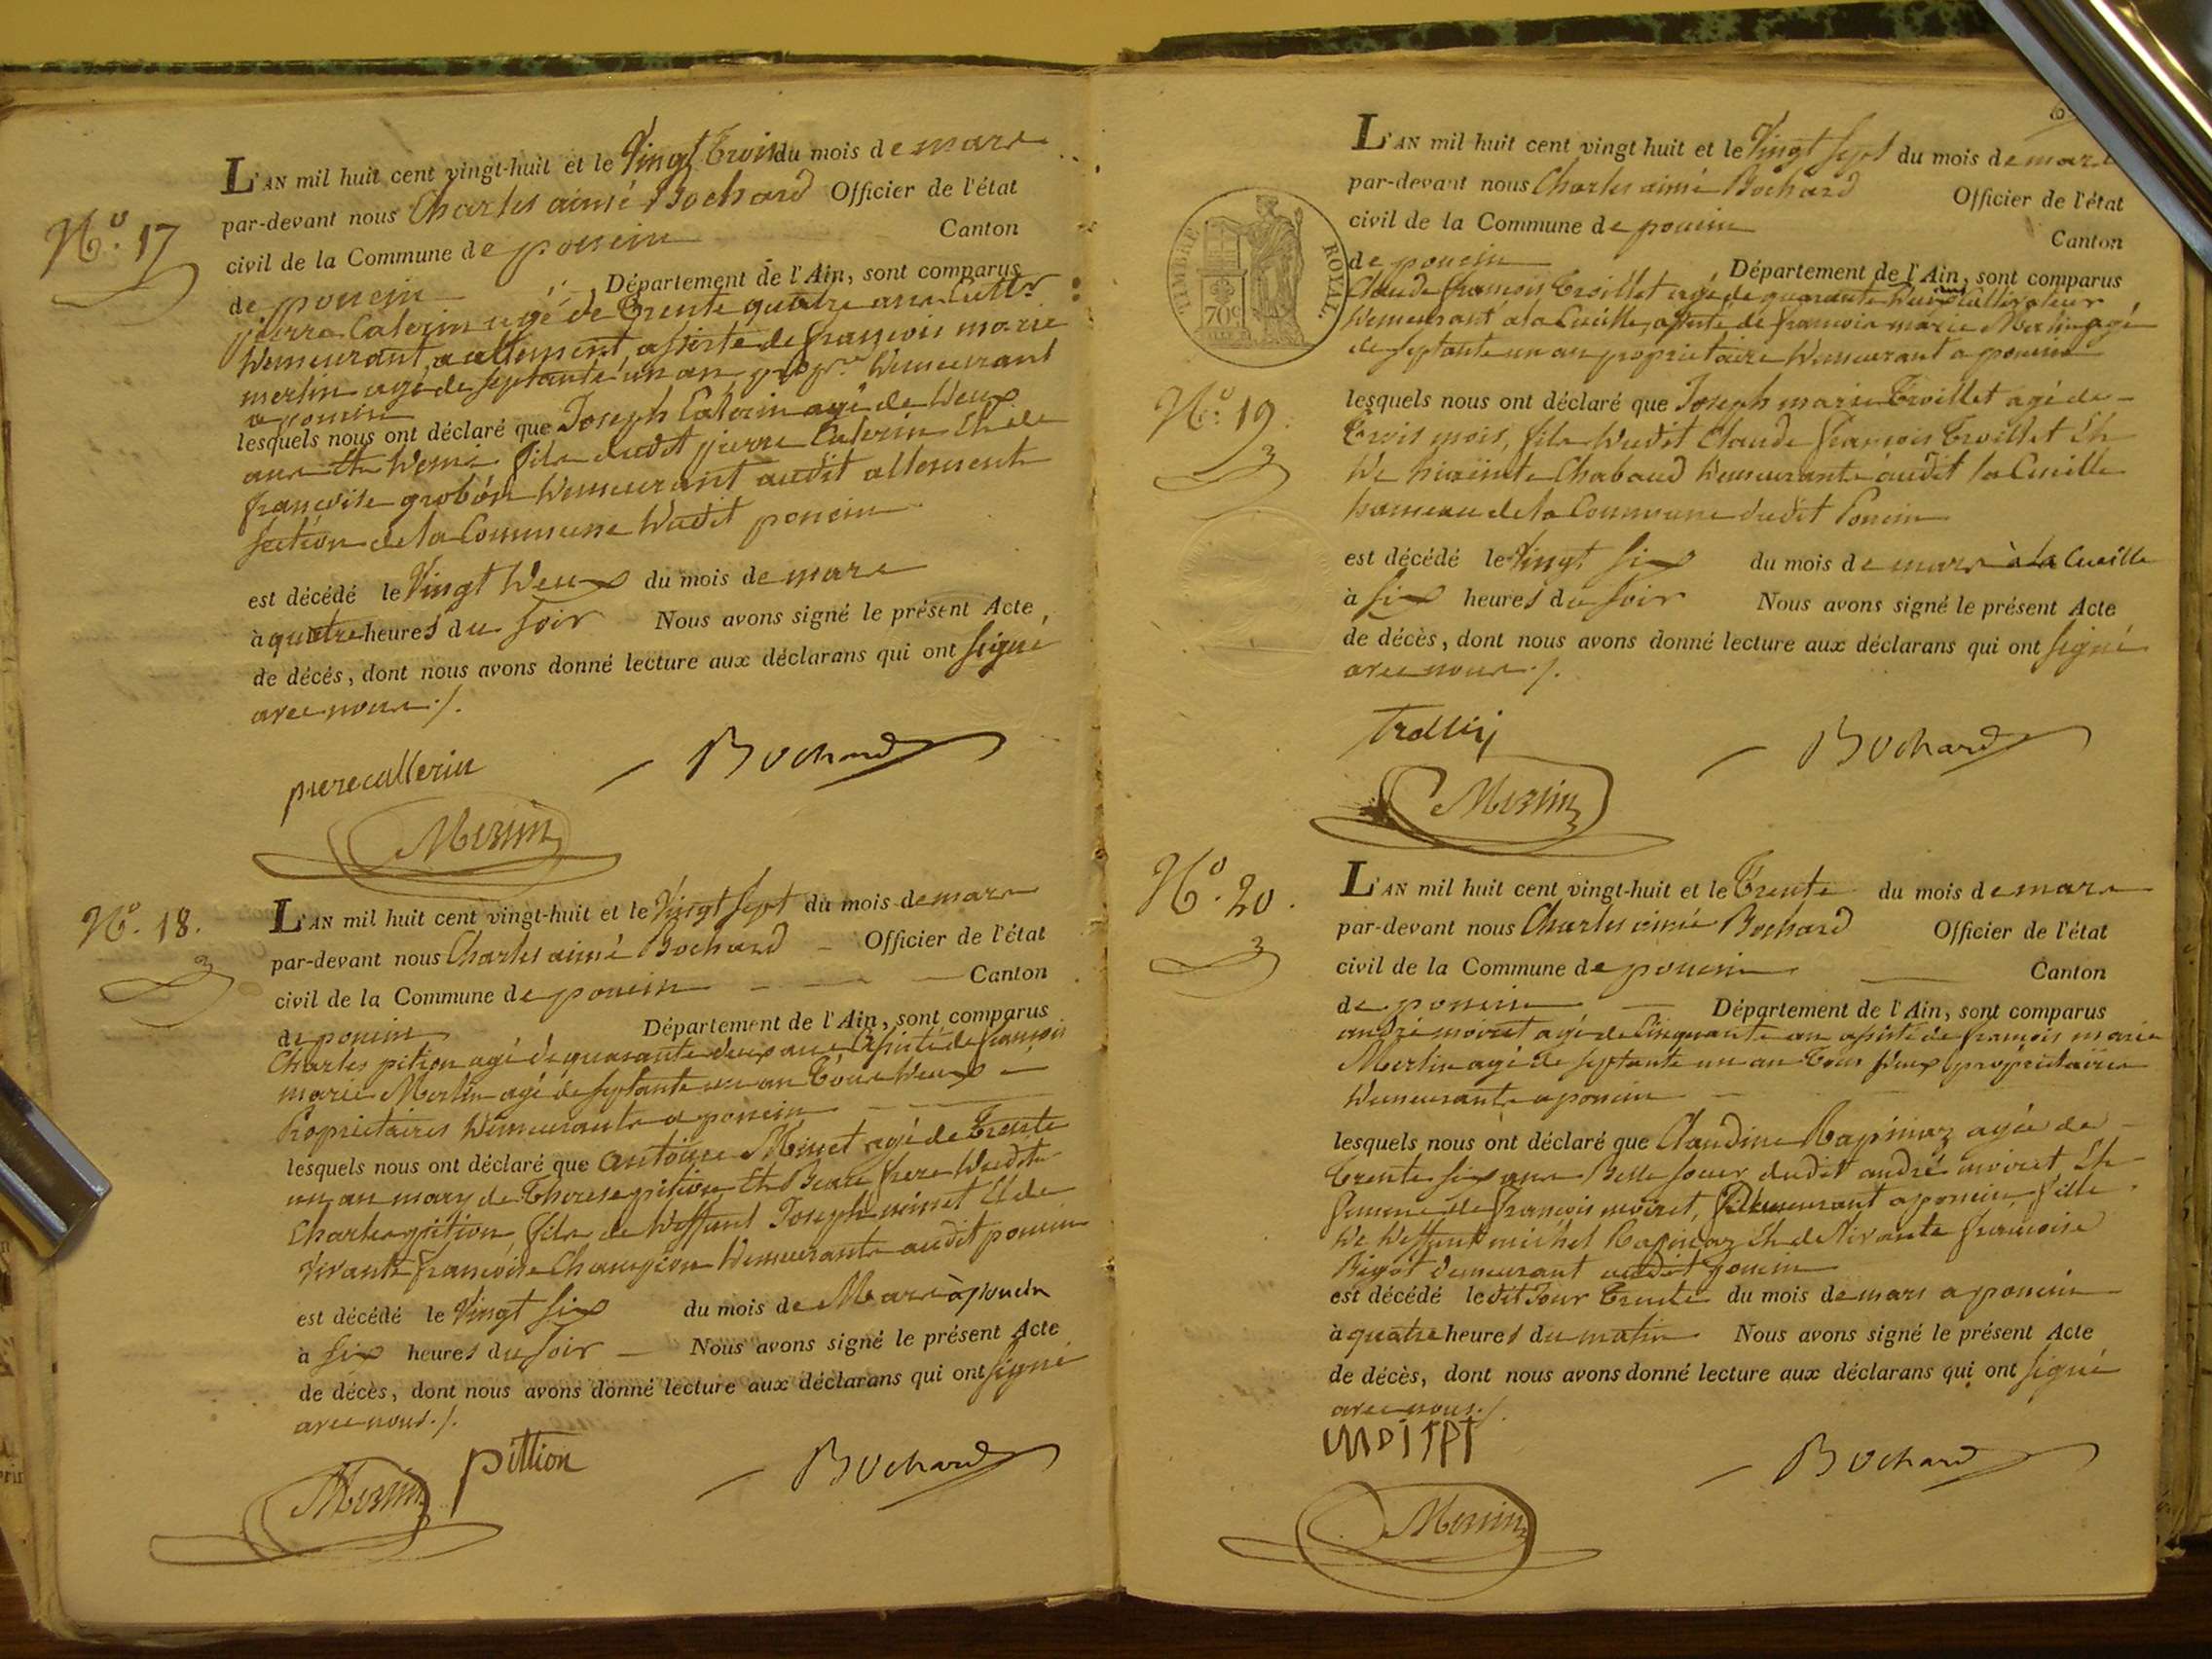 N.° 17
L'AN mil huit cent vingt-huit et le Vingt trois du mois de mars
par-devant nous Charles aimé Bochard Officier de l'état
civil de la Commune de poncin Canton
de poncin Département de l'Ain, sont comparus
pierre Caterin agé de Trente quatre ans Cultr
Demeurant a allement, assisté de françois marie
merlin agé de septante un an propre Demeurant
a poncin
lesquels nous ont déclaré que Joseph Caterin agé de Deux
ans et Demi fils dudit pierre Caterin Et de
françoise grobon Demeurant audit allement
section de la Commune Dudit poncin
est décédé le Vingt Deux du mois de mars
à quatre heures du soir Nous avons signé le présent Acte
de décès, dont nous avons donné lecture aux déclarans qui ont signé
avec nous ./.
pierecallerin Bochard
Merlin
N.° 18.
L'AN mil huit cent vingt-huit et le Vingt sept du mois de mars
par-devant nous Charles aimé Bochard Officier de l'état
civil de la Commune de poncin Canton
de poncin Département de l'Ain, sont comparus
Charles pition agé de quarante deux ans assisté de françois
marie Merlin agé de septante un an Tous Deux
Propriétaires Demeurants a poncin
lesquels nous ont déclaré que antoine Minet agé de Trente
un an mary de Therese pition Et Beau frere Dudit
Charles pition fils de Deffunt Joseph minet Et de
Vivante françoise Champion Demeurante audit poncin
est décédé le Vingt six du mois de Mars à poncin
à six heures du soir Nous avons signé le présent Acte
de décès, dont nous avons donné lecture aux déclarans qui ont signé
avec nous ./.
Merlin pittion Bochard
TIMBRE ROYAL
70c
L'AN mil huit cent vingt huit et le Vingt sept du mois de mars
par-devant nous Charles aimé Bochard Officier de l'état
civil de la Commune de poncin Canton
de poncin Département de l'Ain, sont comparus
Claude françois Troillet agé de quarante Deux ans Cultivateur
Demeurant à la Cueille, assisté de francois marie Merlin agé
de septante un an propriétaire Demeurant a poncin
N.° 19.
lesquels nous ont déclaré que Joseph marie Troillet agé de
Trois mois, fils Dudit Claude françois Troillet Et
De hiacinte Chabaud Demeurante audit la Cueille
hameau de la Commune dudit Poncin
est décédé le Vingt six du mois de mars à la Cueille
à six heures du soir Nous avons signé le présent Acte
de décès, dont nous avons donné lecture aux déclarans qui ont signé
avec nous ./.
Bochard
Merlin
N.° 20.
L'AN mil huit cent vingt-huit et le Trente du mois de mars
par-devant nous Charles aimé Bochard Officier de l'état
civil de la Commune de poncin Canton
de poncin Département de l'Ain, sont comparus
andré moiret agé de Cinquante an assisté de francois marie
Merlin agé de septante un an Tous Deux propriétaires
Demeurants a poncin
lesquels nous ont déclaré que Claudine Rapinaz agée de
Trente six ans Belle soeur dudit andré moiret, Et
femme de françois moiret, Demeurant a poncin fille
De Deffunt michel Rapinaz Et de Vivante françoise
Bigot demeurant audit poncin
est décédé le dit Jour Trente du mois de mars a poncin
à quatre heures du matin Nous avons signé le présent Acte
de décès, dont nous avons donné lecture aux déclarans qui ont signé
avec nous ./.
Bochard
Merlin